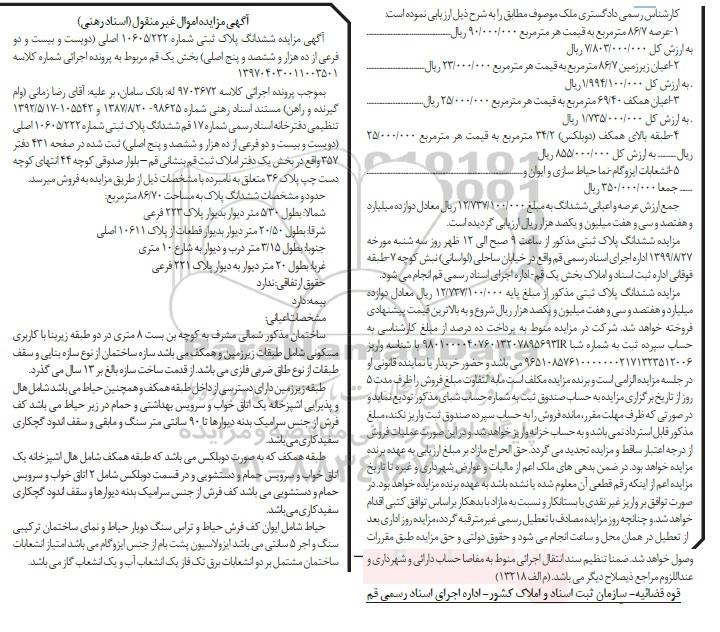 آگهی مزایده اموال غیر منقول (اسناد رهنی)
آگهی مزایده ششدانگ پلاک ثبتی شماره ۱۰۶۰۵/۲۲۲ اصلی (دویست و بیست و دو
فرعی از ده هزار و ششصد و پنج اصلی) بخش یک قم مربوط به پرونده اجرائی شماره کلاسه
۱۳۹۷۰۴۰۳۰۰۱۱۰۰۳۵۰۱
بموجب پرونده اجرائی کلاسه ۹۷۰۳۶۷۲ له: بانک سامان، بر علیه: آقای رضا زمانی (وام
گیرنده و راهن) مستند اسناد رهنی شماره ۹۸۶۲۵- ۱۳۸۷/۸/۲۰ و ۱۰۵۵۴۲-۱۳۹۲/۵/۱۷
تنظیمی دفترخانه اسناد رسمی شماره ۱۷ قم ششدانگ پلاک ثبتی شماره ۱۰۶۰۵/۲۲۲ اصلی
(دویست و بیست و دو فرعی از ده هزار و ششصد و پنج اصلی) ثبت شده در صفحه ۴۳۱ دفتر
۳۵۷ واقع در بخش یک دفتر املاک ثبت قم بنشانی قم – بلوار صدوقی کوچه ۴۴ انتهای کوچه
دست چپ پلاک ۳۶ متعلق به نامبرده با مشخصات ذیل از طریق مزایده به فروش میرسد.
حدود و مشخصات ششدانگ پلاک به مساحت ۸۶/۷۰ مترمربع:
شمالا: بطول ۵/۳۰ متر دیوار بدیوار پلاک ۲۲۳ فرعی
شرقا: بطول ۲۰/۵۰ متر دیوار بدیوار قطعات از پلاک ۱۰۶۱۱ اصلی
جنوبا: بطول ۳/۱۵ متر درب و دیوار به شارع ۱۰ متری
غربا: بطول ۲۰ متر دیوار به دیوار پلاک ۲۲۱ فرعی
حقوق ارتفاقی: ندارد
بیمه: دارد
مشخصات اعیانی:
ساختمان مذکور شمالی مشرف به کوچه بن بست ۸ متری در دو طبقه زیربنا با کاربری
مسکونی شامل طبقات زیرزمین و همکف می باشد سازه ساختمان از نوع سازه بنایی و سقف
طبقات از نوع طاق ضربی فلزی می باشد. از قدمت ساخت سازه بالغ بر ۱۳ سال می گذرد.
طبقه زیرزمین دارای دسترسی از داخل طبقه همکف و همچنین حیاط می باشد شامل هال
و پذیرایی اشپزخانه یک اتاق خواب و سرویس بهداشتی و حمام در زیر حیاط می باشد کف
فرش از جنس سرامیک بدنه دیوارها تا ۹۰ سانتی متر سنگ و مابقی و سقف اندود گچکاری
سفیدکاری می باشد.
طبقه همکف که به صورت دوبلکس می باشد که طبقه همکف شامل هال اشپزخانه یک
اتاق خواب و سرویس حمام و دستشویی و در قسمت دوبلکس شامل ۲ اتاق خواب و سرویس
حمام و دستشویی می باشد کف فرش از جنس سرامیک بدنه دیوارها و سقف اندود گچکاری
سفیدکاری می باشد.
حیاط شامل ایوان کف فرش حیاط و تراس سنگ دوپار حیاط و نمای ساختمان ترکیبی
سنگ و اجر ۵ سانتی می باشد ایزولاسیون پشت بام از جنس ایزوگام می باشد امتیاز انشعابات
ساختمان مشتمل بر دو انشعابات برق تک فاز یک انشعاب آب و یک انشعاب گاز می باشد.
کارشناس رسمی دادگستری ملک موصوف مطابق را به شرح ذیل ارزیابی نموده است:
۱-عرصه ۸۶/۷ مترمربع به قیمت هر مترمربع ۹۰/۰۰۰/۰۰۰ ریال
به ارزش کل ۷/۸۰۳/۰۰۰/۰۰۰ ریال
۲-اعیان زیرزمین ۸۶/۷ مترمربع به قیمت هر مترمربع ۲۳/۰۰۰/۰۰۰ ریال
.به ارزش کل ۱/۹۹۴/۱۰۰/۰۰۰ ریال
۳-اعیان همکف ۶۹/۴۰ مترمربع به قیمت هر مترمربع ۲۵/۰۰۰/۰۰۰ ریال
.به ارزش کل ۱/۷۳۵/۰۰۰/۰۰۰ ریال
۴-طبقه بالای همکف (دوبلکس) ۳۴/۲ مترمربع به قیمت هر مترمربع ۲۵/۰۰۰/۰۰۰
ریال........ به ارزش کل ۸۵۵/۰۰۰/۰۰۰ ریال
۵-انشعابات ایزوگام-نما حیاط سازی و ایوان و
..... جمعا ۳۵۰/۰۰۰/۰۰۰ ریال
جمع ارزش عرصه و اعیانی ششدانگ به مبلغ ۱۲/۷۳۷/۱۰۰/۰۰۰ ریال معادل دوازده میلیارد
و هفتصد و سی و هفت میلیون و یکصد هزار ریال ارزیابی گردیده است.
مزایده ششدانگ پلاک ثبتی مذکور از ساعت ۹ صبح الی ۱۲ ظهر روز سه شنبه مورخه
۱۳۹۹/۸/۲۷ اداره اجرای اسناد رسمی قم واقع در خیابان ساحلی (لواسانی) نبش کوچه ۷-طبقه
فوقانی اداره ثبت اسناد و املاک بخش یک قم-اداره اجرای اسناد رسمی قم انجام می شود.
مزایده ششدانگ پلاک ثبتی مذکور از مبلغ پایه ۱۲/۷۳۷/۱۰۰/۰۰۰ ریال معادل دوازده
میلیارد و هفتصد و سی و هفت میلیون و یکصد هزار ریال شروع و به بالاترین قیمت پیشنهادی
فروخته خواهد شد. شرکت در مزایده منوط به پرداخت ده درصد از مبلغ کارشناسی به
حساب سپرده ثبت به شماره شبا با شناسه واریز
می باشد و حضور خریدار یا نماینده قانونی او
در جلسه مزایده الزامی است و برنده مزایده مکلف است مابه التفاوت مبلغ فروش را ظرف مدت ۵
روز از تاریخ برگزاری مزایده به حساب صندوق ثبت به شماره حساب شبای مذکور تودیع نماید و
در صورتی که ظرف مهلت مقرر، مانده فروش را به حساب سپرده صندوق ثبت واریز نکند، مبلغ
مذکور قابل استرداد نمی باشد و به حساب خزانه واریز خواهد شد و در این صورت عملیات فروش
از درجه اعتبار ساقط و مزایده تجدید می گردد. حق الحراج مازاد بر مبلغ ارزیابی به عهده برنده
مزایده خواهد بود. در ضمن بدهی های ملک اعم از مالیات و عوارض شهرداری و غیره تا تاریخ
مزایده اعم از اینکه رقم قطعی آن معلوم شده یا نشده باشد به عهده برنده مزایده خواهد بود. در
صورت توافق بر واریز غیر نقدی با بستانکار و نسبت به مازاد با بدهکار بر اساس توافق کتبی اقدام
خواهد شد. و چنانچه روز مزایده مصادف با تعطیل رسمی غیرمترقبه گردد، مزایده روز اداری بعد
از تعطیل در همان محل و ساعت انجام می شود و حقوق دولتی و حق مزایده طبق مقررات
وصول خواهد شد. ضمنا تنظیم سند انتقال اجرائی منوط به مفاصا حساب دارائی و شهرداری و
عنداللزوم مراجع ذیصلاح دیگر می باشد. (م الف ۱۳۲۱۸)
قوه قضائیه- سازمان ثبت اسناد و املاک کشور- اداره اجرای اسناد رسمی قم